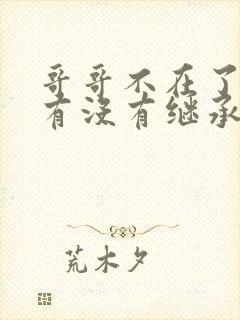 哥哥不在了
有没有继承
荒木夕